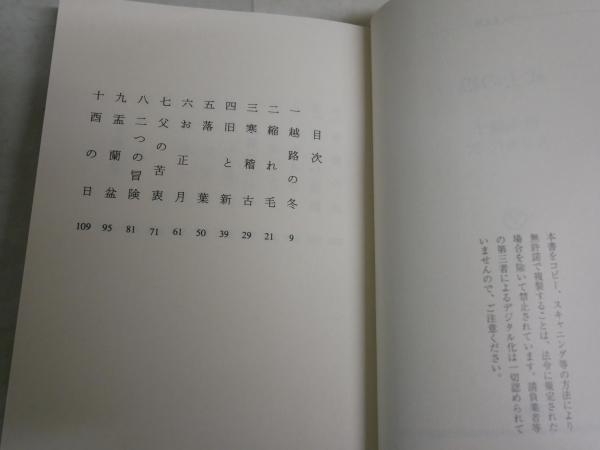 本書をコピー、スキャニング等の方法により
無許諾で複製することは、法令に規定された
場合を除いて禁止されています。請負業者等
の第三者によるデジタル化は一切認められて
いませんので、ご注意ください。
目次
一 越路の冬 9
二 縮れ毛 21
三 寒稽古 29
四 旧と新 39
五 落葉 50
六 お正月 61
七 父の苦衷 71
八 二つの冒険 81
九 盂蘭盆 95
十 酉の日 109